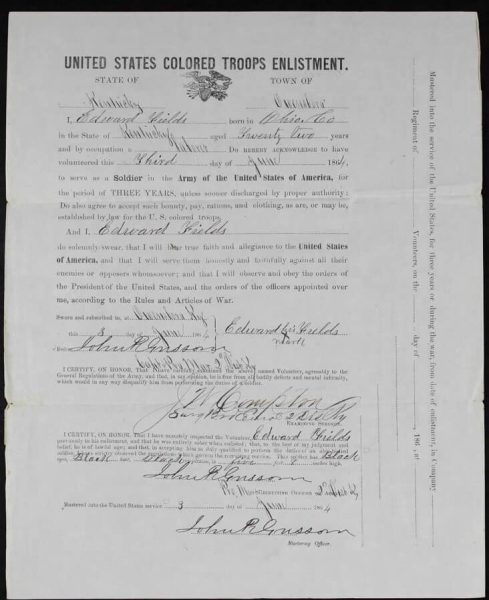 UNITED STATES COLORED TROOPS ENLISTMENT.
STATE OF TOWN OF
Kentucky Owensboro
I, Edward Fields born in Ohio Co
in the State of Kentucky aged Twenty two years
and by occupation a Do HEREBY ACKNOWLEDGE to have
volunteered this Third day of June 1864,
to serve as a Soldier in the Army of the United States of America, for
the period of THREE YEARS, unless sooner discharged by proper authority:
Do also agree to accept such bounty, pay, rations, and clothing, as are, or may be,
established by law for the U. S. colored troops.
And I Edward Fields
do solemnly swear, that I will bear true faith and allegiance to the United States
of America, and that I will serve them honestly and faithfully against all their
enemies or opposers whomsoever; and that I will observe and obey the orders of
the President of the United States, and the orders of the officers appointed over
me, according to the Rules and Articles of War.
Sworn and subscribed to, at Owensboro Ky
this 3 day of June 1864 Edward his Fields
mark
Before John R Grissom
I CERTIFY, ON HONOR, That I have carefully examined the above named Volunteer, agreeably to the
General Regulations of the Army, and that, in my opinion, he is free from all bodily defects and mental infirmity,
which would in any way disqualify him from performing the duties of a soldier.
J W Compton
EXAMINING SURGEON.
I CERTIFY, ON HONOR, That I have minutely inspected the Volunteer, Edward Fields
previously to his enlistment, and that he was entirely sober when enlisted; that, to the best of my judgment and
belief, he is of lawful age; and that, in accepting him as duly qualified to perform the duties of an able-bodied
soldier, I have strictly observed the regulations which govern the recruiting service. This soldier has Black
eyes, Black hair, Black complexion, is five feet inches high.
John R Grissom
RECRUITING OFFICER
Mustered into the United States service 3 day of June 1864
John R Grissom
Mustering Officer.
Mustered into the service of the United States, for three years or during the war, from date of enlistment, in Company
Regiment of Volunteers, on the day of 186 , at